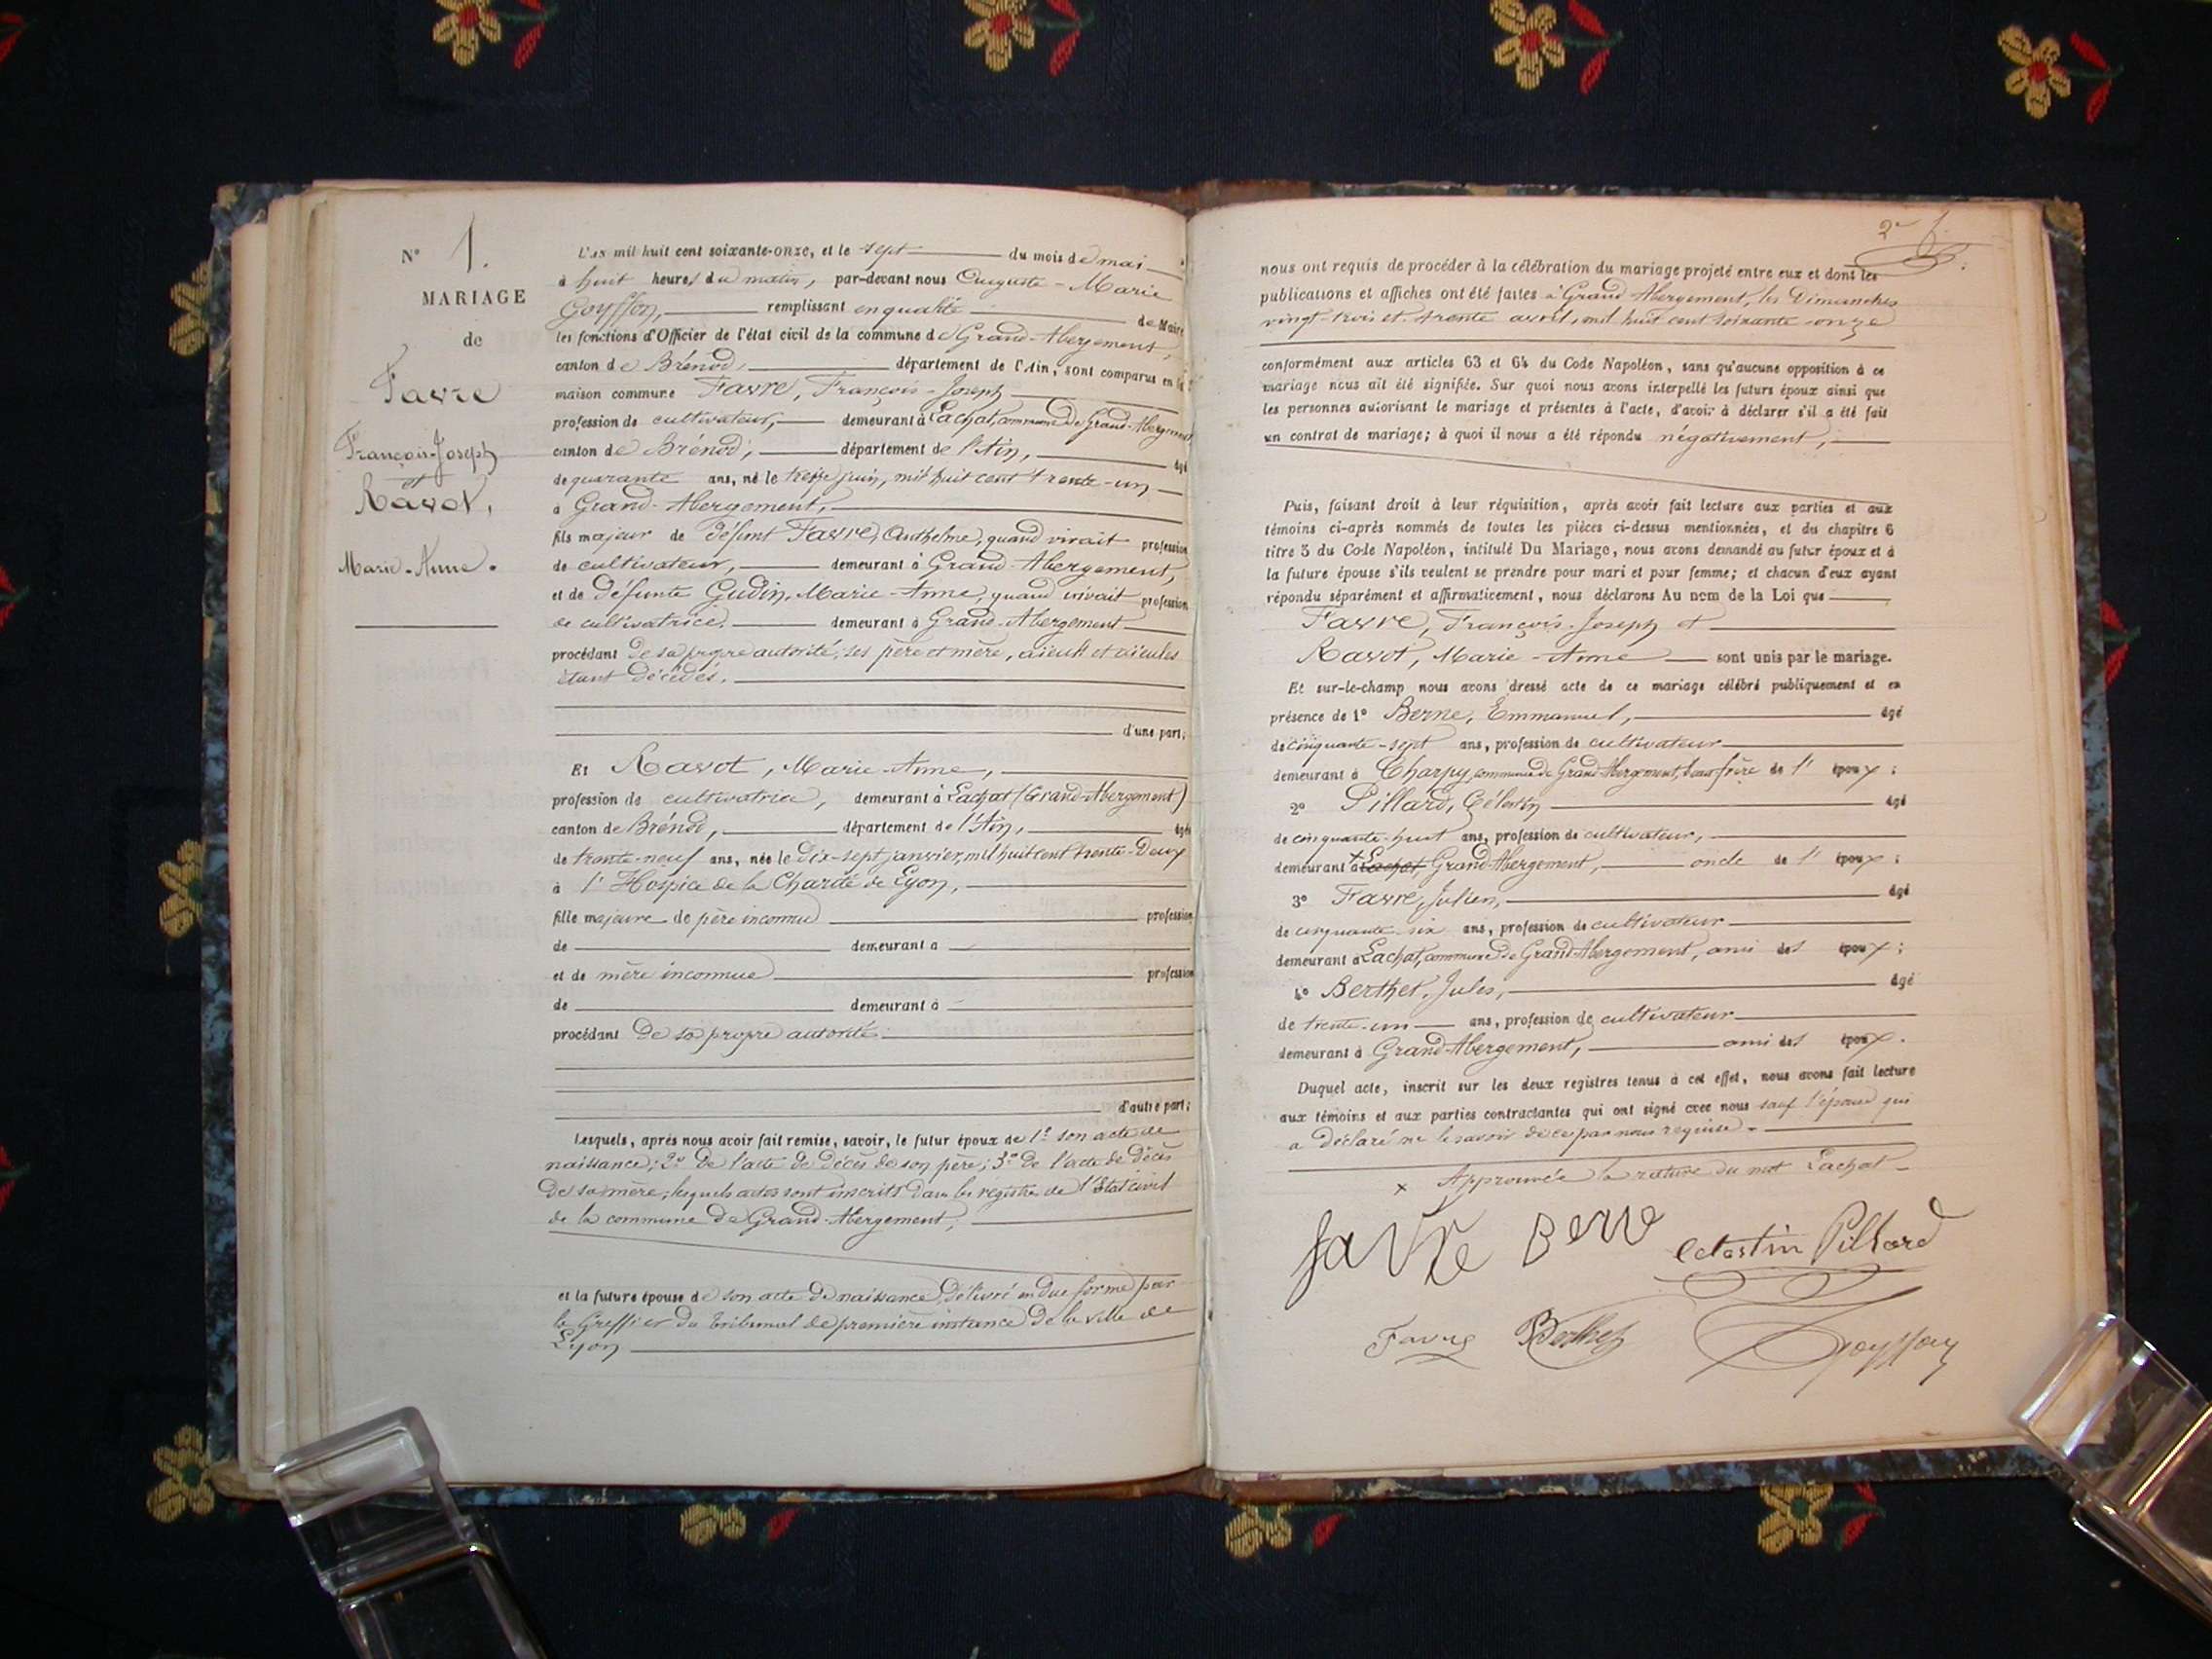 N° 1.
MARIAGE
de
Favre
François-Joseph
et
Ravot,
Marie-Anne.
L'AN mil huit cent soixante-onze, et le sept du mois de mai
à huit heures du matin, par-devant nous Auguste-Marie
Goyffon, remplissant en qualité de Maire
les fonctions d'Officier de l'état civil de la commune de Grand-Abergement,
canton de Brénod, département de l'Ain, sont comparus en la
maison commune Favre, François-Joseph
profession de cultivateur, demeurant à Lachat, commune de Grand-Abergement
canton de Brénod, département de l'Ain, âgé
de quarante ans, né le treize juin, mil huit cent trente-un
à Grand-Abergement,
fils majeur de défunt Favre, Anthelme, quand vivait profession
de cultivateur, demeurant à Grand-Abergement,
et de défunte Gudin, Marie-Anne, quand vivait profession
de cultivatrice, demeurant à Grand-Abergement
procédant de sa propre autorité, ses père et mère, aïeuls et aïeules
étant décédés.
d'une part;
Et Ravot, Marie-Anne,
profession de cultivatrice, demeurant à Lachat (Grand-Abergement)
canton de Brénod, département de l'Ain, âgée
de trente-neuf ans, née le dix-sept janvier, mil huit cent trente-deux
à l'Hospice de la Charité de Lyon,
fille majeure de père inconnu profession
de demeurant à
et de mère inconnue profession
de demeurant à
procédant de sa propre autorité
d'autre part;
Lesquels, après nous avoir fait remise, savoir, le futur époux de 1° son acte de
naissance; 2° de l'acte de décès de son père; 3° de l'acte de décès
de sa mère; lesquels actes sont inscrits dans les registres de l'Etat civil
de la commune de Grand-Abergement,
et la future épouse de son acte de naissance, délivré en due forme par
le Greffier du tribunal de première instance de la ville de
Lyon
2e f.
nous ont requis de procéder à la célébration du mariage projeté entre eux et dont les
publications et affiches ont été faites à Grand-Abergement, les Dimanches
vingt-trois et trente avril, mil huit cent soixante-onze
conformément aux articles 63 et 64 du Code Napoléon, sans qu'aucune opposition à ce
mariage nous ait été signifiée. Sur quoi nous avons interpellé les futurs époux ainsi que
les personnes autorisant le mariage et présentes à l'acte, d'avoir à déclarer s'il a été fait
un contrat de mariage; à quoi il nous a été répondu négativement,
Puis, faisant droit à leur réquisition, après avoir fait lecture aux parties et aux
témoins ci-après nommés de toutes les pièces ci-dessus mentionnées, et du chapitre 6
titre 5 du Code Napoléon, intitulé Du Mariage, nous avons demandé au futur époux et à
la future épouse s'ils veulent se prendre pour mari et pour femme; et chacun d'eux ayant
répondu séparément et affirmativement, nous déclarons Au nom de la Loi que
Favre, François-Joseph et
Ravot, Marie-Anne sont unis par le mariage.
Et sur-le-champ nous avons dressé acte de ce mariage célébré publiquement et en
présence de 1° Berne, Emmanuel, âgé
de cinquante-sept ans, profession de cultivateur
demeurant à Charpy, commune de Grand-Abergement, beau frère de l'époux;
2° Pillard, Célestin âgé
de cinquante-huit ans, profession de cultivateur,
demeurant à x Lachat Grand-Abergement, oncle de l'époux;
3° Favre, Julien, âgé
de cinquante-six ans, profession de cultivateur
demeurant à Lachat, commune de Grand-Abergement, ami des époux;
4° Berthet, Jules, âgé
de trente-un ans, profession de cultivateur
demeurant à Grand-Abergement, ami des époux.
Duquel acte, inscrit sur les deux registres tenus à cet effet, nous avons fait lecture
aux témoins et aux parties contractantes qui ont signé avec nous sauf l'épouse qui
a déclaré ne le savoir de ce par nous requise.
x Approuvée la rature du mot Lachat
favre Berne Celestin Pillard
Favre Berthet Goyffon